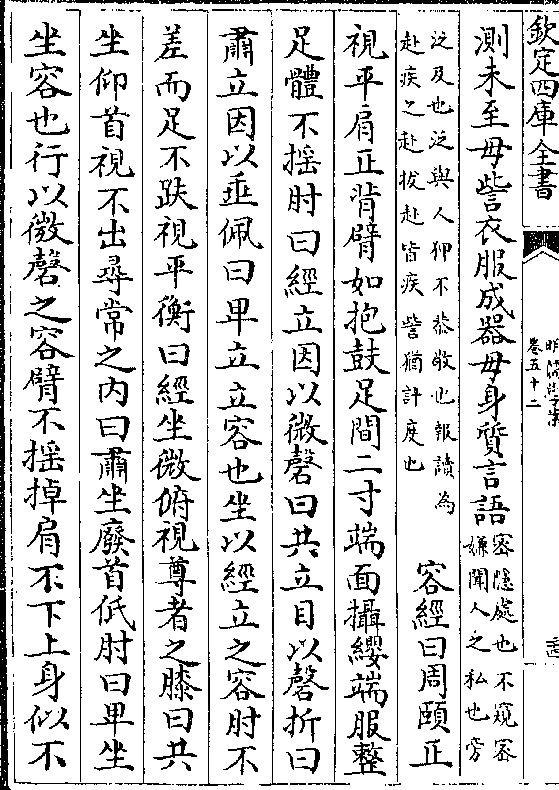 欽定四庫全書
卷五十二
測未至毋訾衣服成器毋身質言語
密隱處也不窺密
嫌聞人之私也旁
泛及也泛與人狎不恭敬也報讀為
赴疾之赴拔赴皆疾訾猶計度也
容經曰周頤正
視平肩正背臂如抱鼓足間二寸端面攝纓端服整
足體不揺肘曰經立因以微磬曰共立目以磬折曰
肅立因以垂佩曰卑立立容也坐以經立之容肘不
差而足不跌視平衡曰經坐微俯視尊者之膝曰共
坐仰首視不出尋常之内曰肅坐廢首低肘曰卑坐
坐容也行以微磬之容臂不揺掉肩不下上身似不